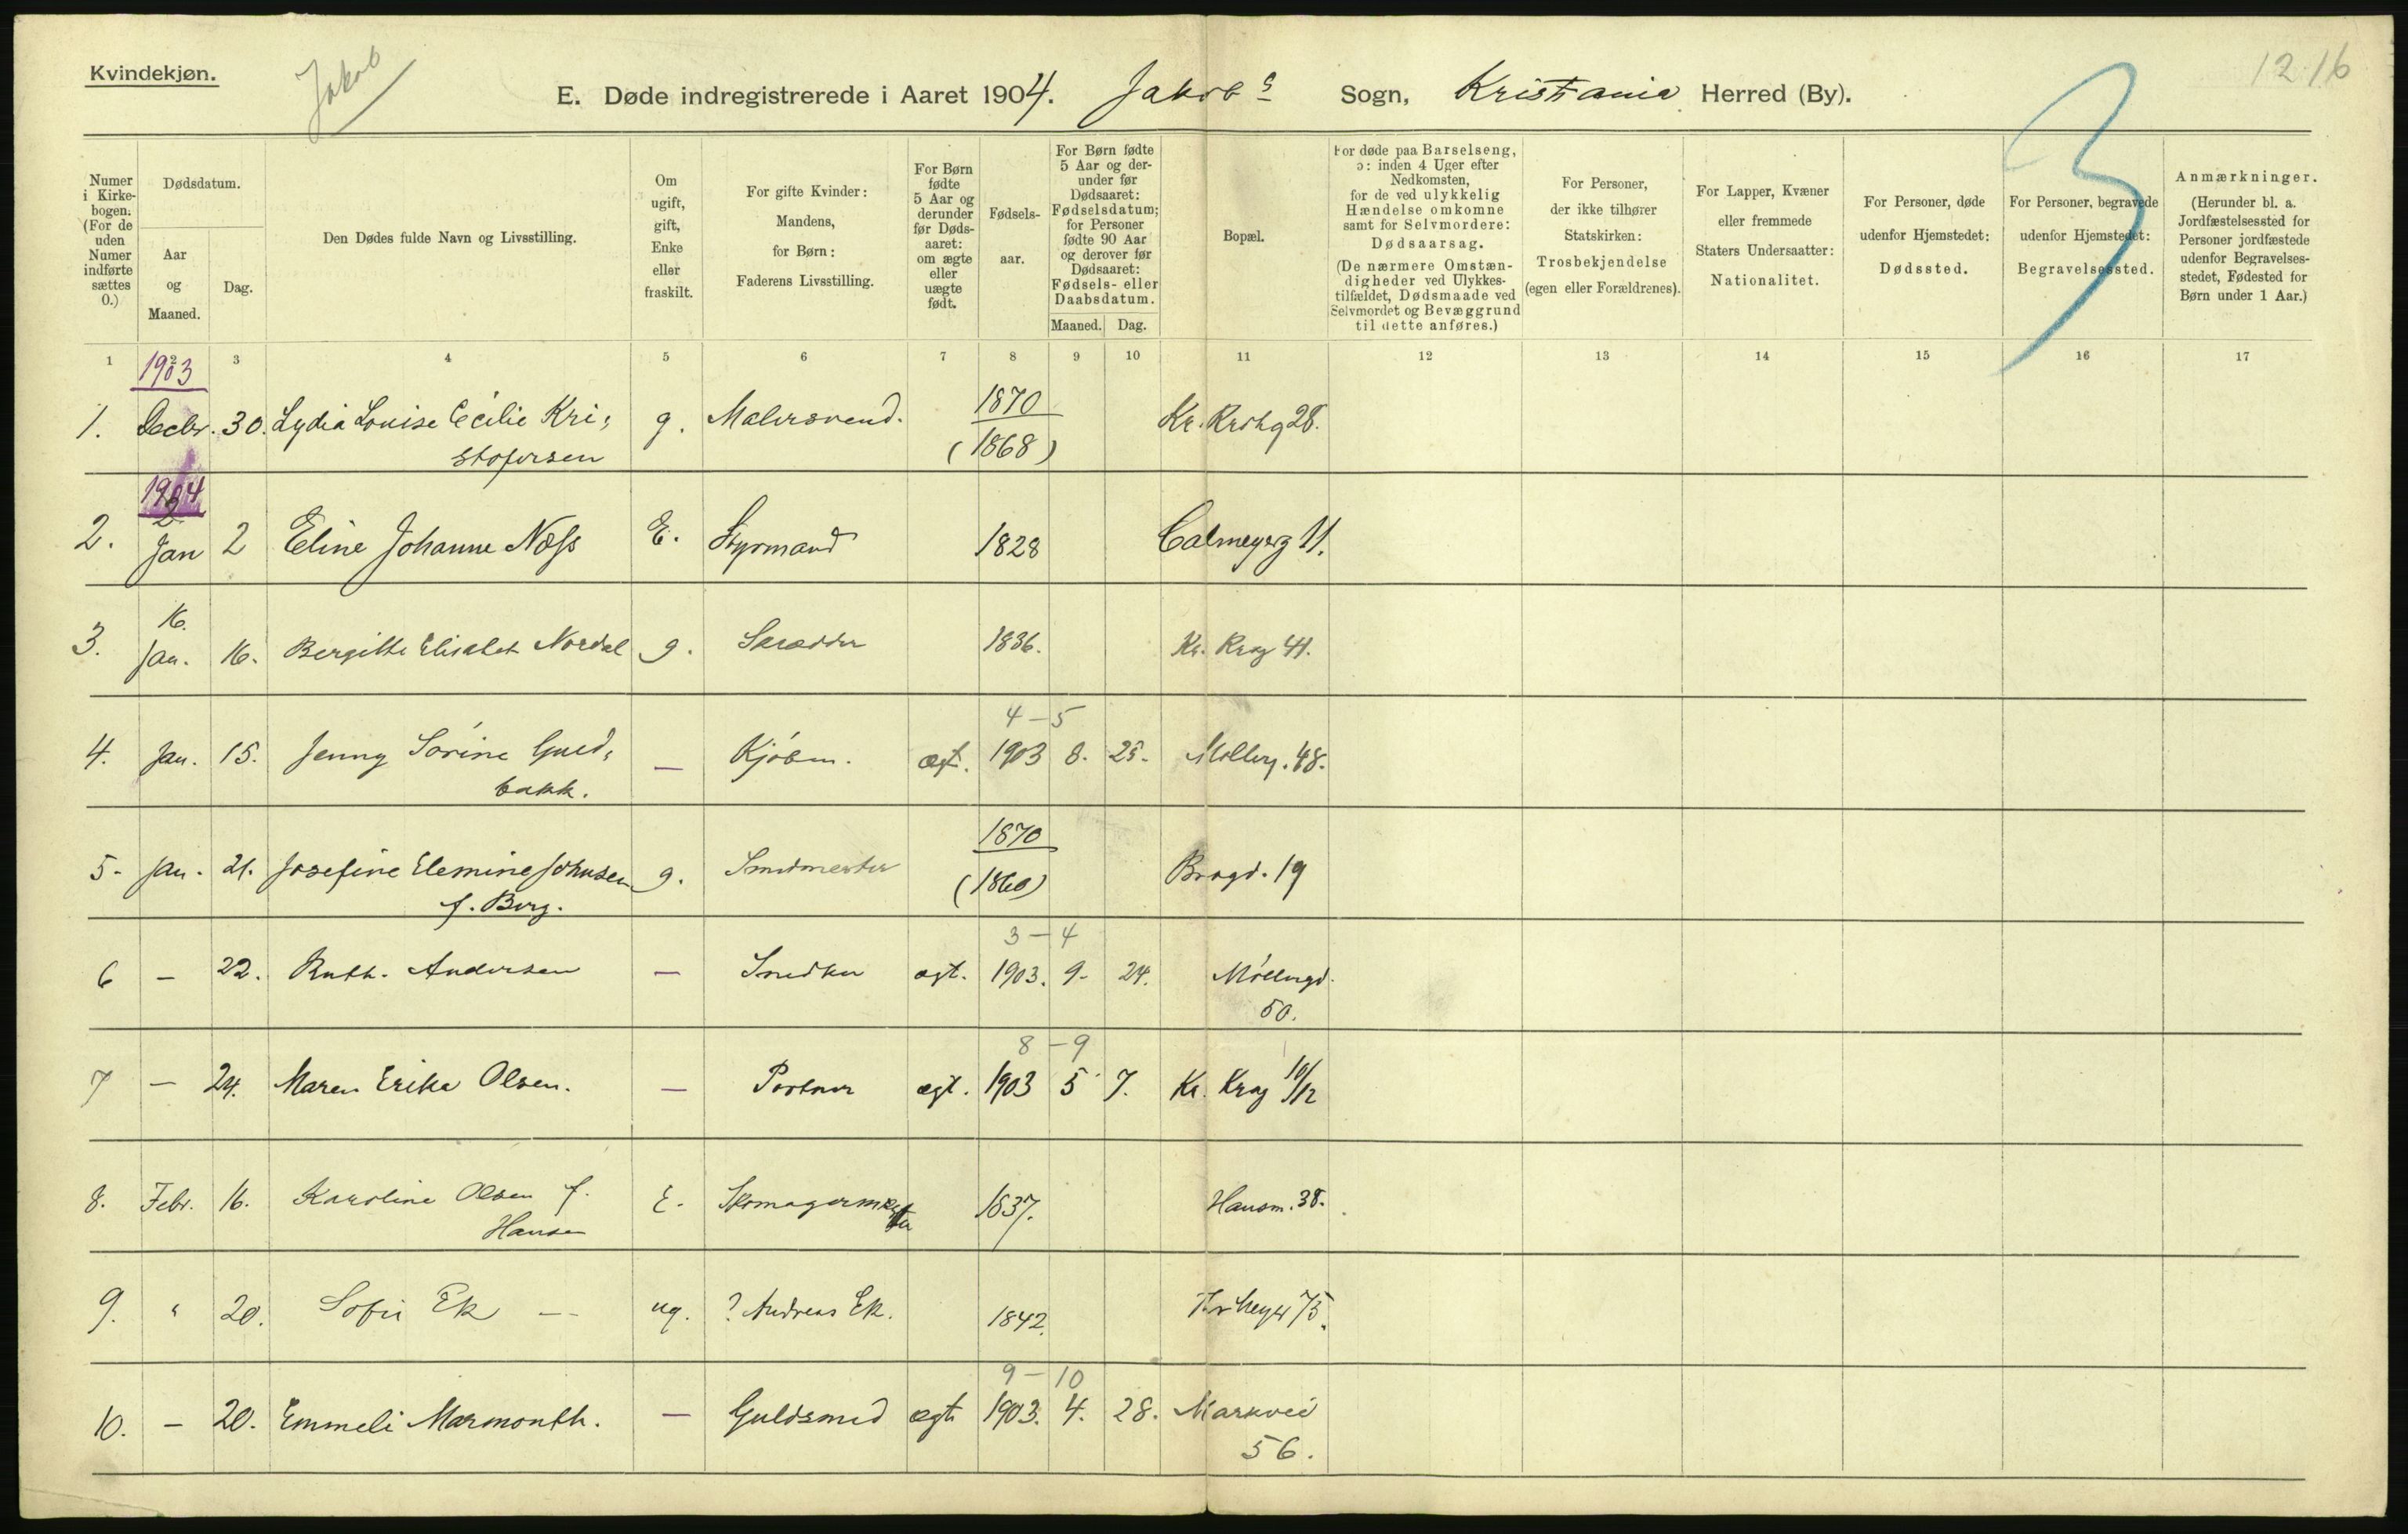 Kvindekjøn.
Jakob
1216
E. Døde indregistrerede i Aaret 1904. Jakobs Sogn, Kristiania Herred (By).
3
Numer i Kirkebogen. (For de uden Numer indførte sættes 0.)
Dødsdatum.
Aar og Maaned.
Dag.
Den Dødes fulde Navn og Livsstilling.
Om ugift, gift, Enke eller fraskilt.
For gifte Kvinder: Mandens, for Børn: Faderens Livsstilling.
For Børn fødte 5 Aar og derunder før Dødsaaret: om ægte eller uægte født.
Fødselsaar.
For Børn fødte 5 Aar og derunder før Dødsaaret: Fødselsdatum; for Personer fødte 90 Aar og derover før Dødsaaret: Fødsels- eller Daabsdatum.
Maaned. Dag.
Bopæl.
For døde paa Barselseng, ɔ: inden 4 Uger efter Nedkomsten, for de ved ulykkelig Hændelse omkomne samt for Selvmordere: Dødsaarsag. (De nærmere Omstændigheder ved Ulykkestilfældet, Dødsmaade ved Selvmordet og Bevæggrund til dette anføres.)
For Personer, der ikke tilhører Statskirken: Trosbekjendelse (egen eller Forældrenes).
For Lapper, Kvæner eller fremmede Staters Undersaatter: Nationalitet.
For Personer, døde udenfor Hjemstedet: Dødssted.
For Personer, begravede udenfor Hjemstedet: Begravelsessted.
Anmærkninger. (Herunder bl. a. Jordfæstelsessted for Personer jordfæstede udenfor Begravelsesstedet, Fødested for Børn under 1 Aar.)
1 2 3 4 5 6 7 8 9 10 11 12 13 14 15 16 17
1903
1. Decbr. 30. Lydia Louise Cecilie Kri- g. Malersvend. 1870 Kr. Krohg 28.
stofersen (1868)
1904
2. Jan 2 Eline Johanne Næss E. Styrmand 1828 Calmeyerg 11.
16.
3. Jan. 16. Bergitte Elisabet Nordal g. Skrædder 1836. Kr. Krog 41.
4-5
4. Jan. 15. Jenny Sørine Guld- — Kjøbm. ægt. 1903 8. 25. Møllerg. 48.
bakk.
1870
5. Jan. 21. Josefine Elemine Johnsen g. Smedmester (1860) Brogd. 19
f. Berg.
3-4
6 — 22. Ruth. Andersen — Snedker ægt. 1903. 9. 24. Møllergd.
50.
8-9
7 — 24. Maren Erika Olsen. — Portner ægt. 1903 5 7. Kr. Krog 10/12
8. Febr. 16. Karoline Olsen f. E. Skomagermester 1837. Hausm. 38.
Hansen
9. " 20. Sofie Ek — ug. ? Andreas Ek. 1842. 75.
9-10
10. — 20. Emmeli Marmonth. — Guldsmed ægt 1903. 4. 28. Markvei
56.